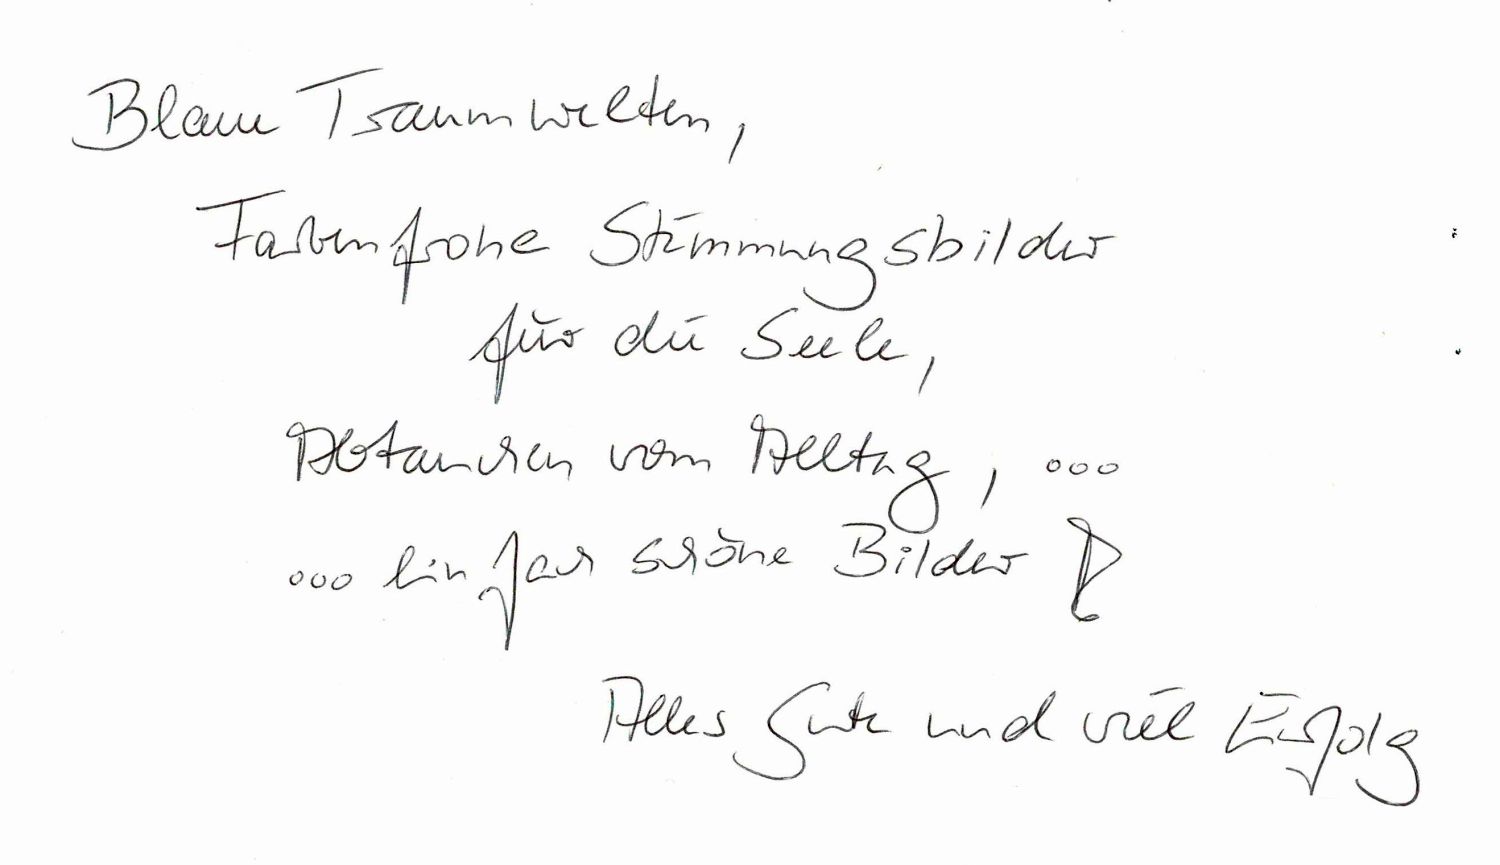 Blaue Traumwelten,
Farbenfrohe Stimmungsbilder
für die Seele,
Abtauchen vom Alltag, ...
... einfach schöne Bilder!
Alles Gute und viel Erfolg